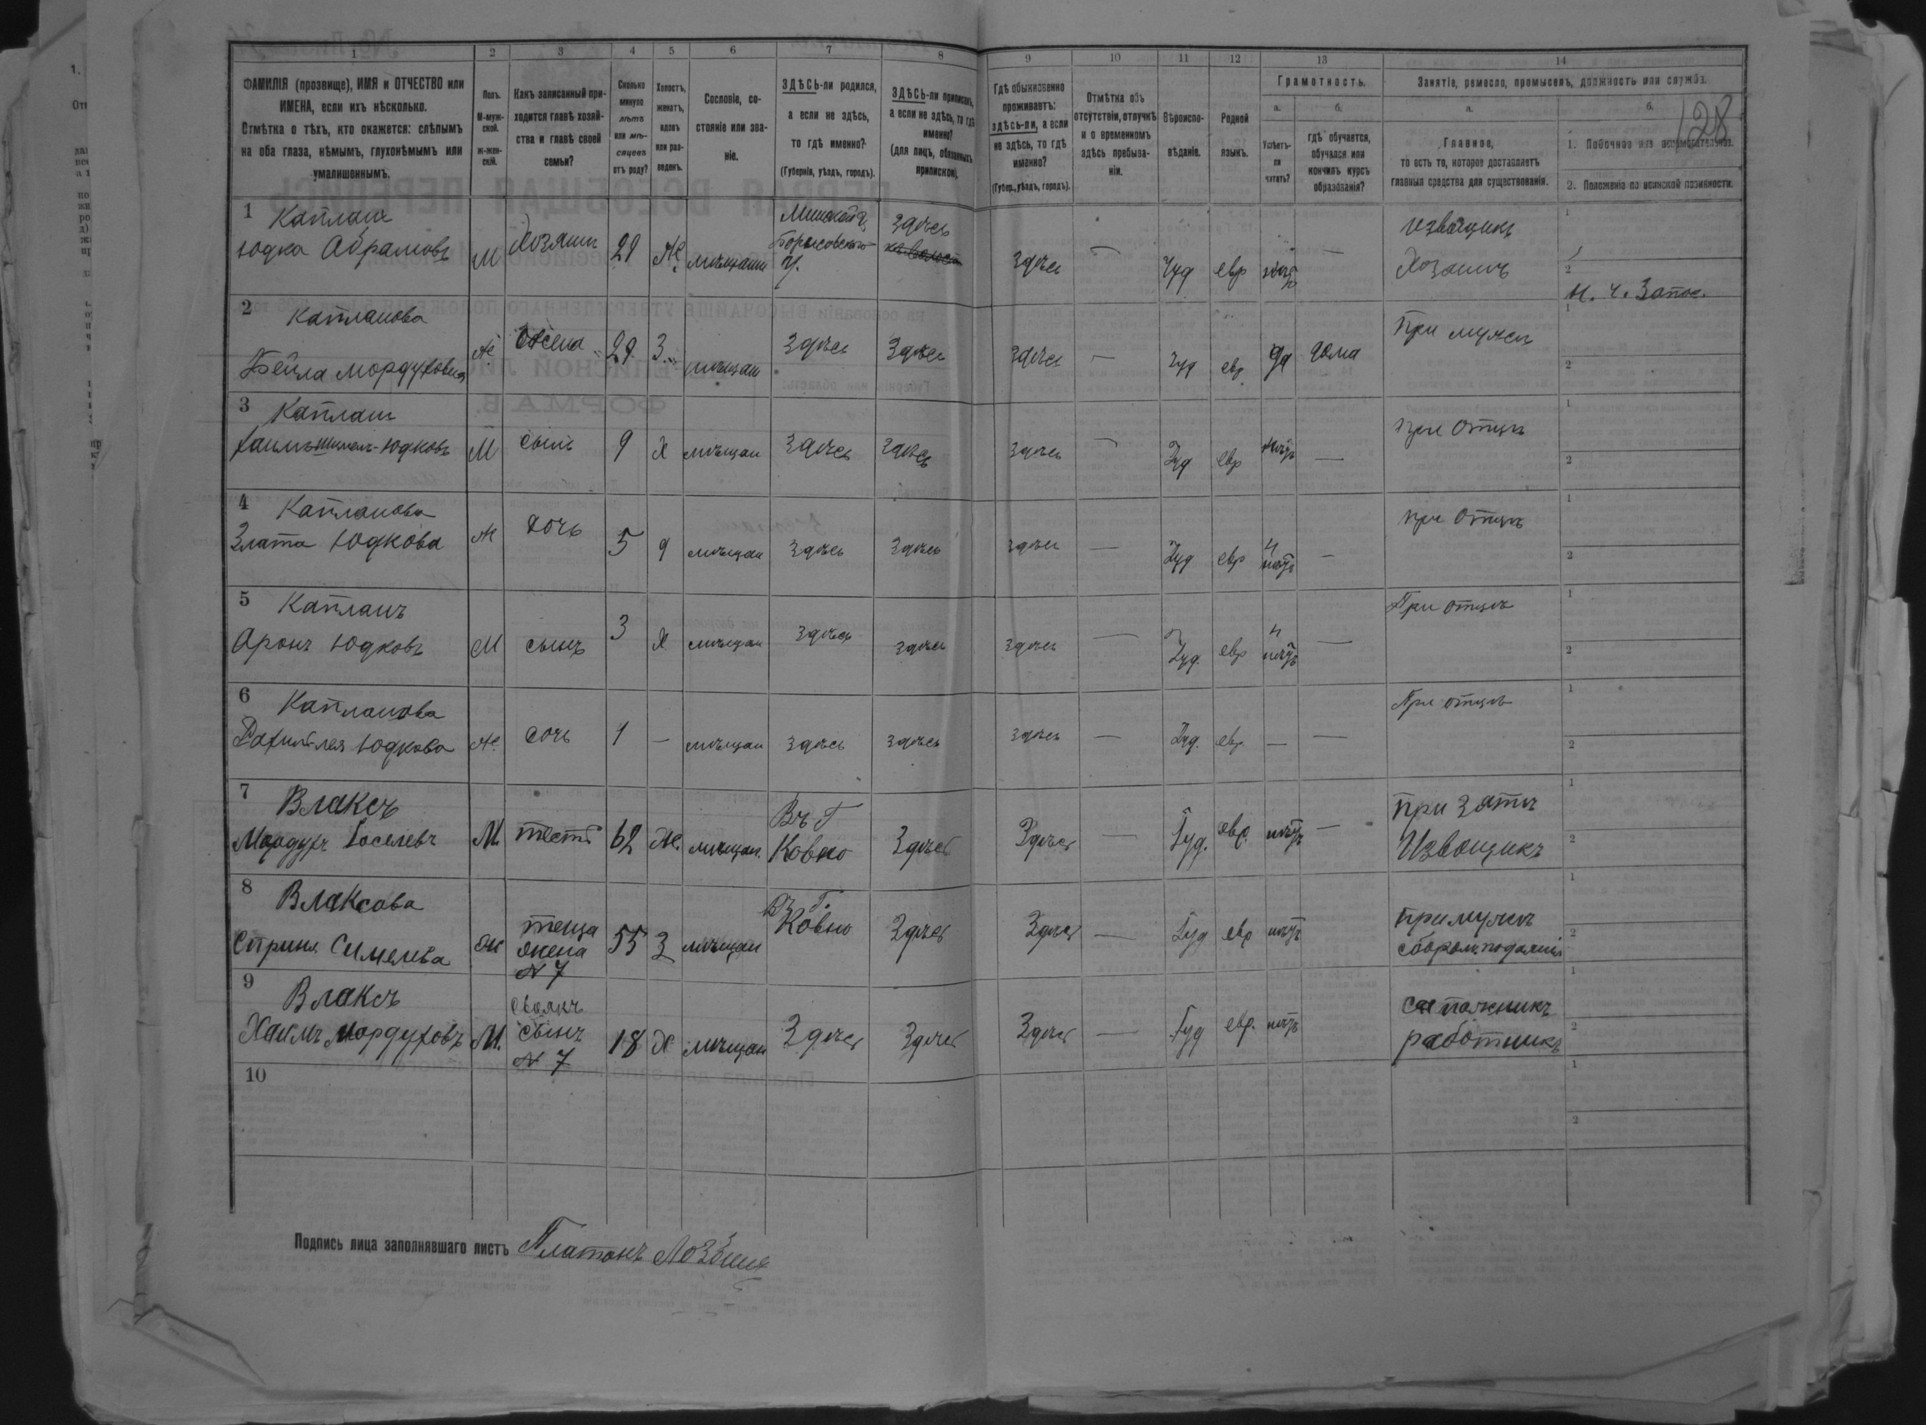 128
1 2 3 4 5 6 7 8 9 10 11 12 13 14
ФАМИЛІЯ (прозвище), ИМЯ и ОТЧЕСТВО или ИМЕНА, если ихъ нѣсколько.
Отмѣтка о тѣхъ, кто окажется: слѣпымъ на оба глаза, нѣмымъ, глухонѣмымъ или умалишоннымъ.
Полъ.
М-мужской.
ж-женскій.
Какъ записанный приходится главѣ хозяйства и главѣ своей семьи?
Сколько минуло лѣтъ или мѣсяцевъ отъ роду?
Холостъ, женатъ, вдовъ или разведенъ.
Сословіе, состояніе или званіе.
ЗДѢСЬ-ли родился, а если не здѣсь, то гдѣ именно?
(Губернія, уѣздъ, городъ).
ЗДѢСЬ-ли приписанъ, а если не здѣсь, то гдѣ именно?
(для лицъ, обязанныхъ припискою).
Гдѣ обыкновенно проживаетъ: здѣсь-ли, а если не здѣсь, то гдѣ именно?
(Губер., уѣздъ, городъ).
Отмѣтка объ отсутствіи, отлучкѣ и о временномъ здѣсь пребываніи.
Вѣроисповѣданіе.
Родной языкъ.
Грамотность.
а.
Умѣетъ-ли читать?
б.
гдѣ обучается, обучался или кончилъ курсъ образованія?
Занятіе, ремесло, промыселъ, должность или служба.
а.
Главное,
то есть то, которое доставляетъ главныя средства для существованія.
б.
1. Побочное или вспомогательное.
2. Положеніе по воинской повинности.
1 Капланъ
Юдка Абрамовъ М Хозяинъ 29 Ж. мѣщанин Минской г. Борисовского у. здѣсь здѣсь — Іуд евр негр — извощикъ
Хозяинъ
1
2
н. ч. Запос.
2 Капланова
Бейла Мордухова ж жена 29 З. мѣщан здѣсь здѣсь здѣсь — Іуд евр да дома При мужѣ
1
2
3 Каплан
Хаимъ Юдковъ М сынъ 9 Х мѣщан здѣсь здѣсь здѣсь — Іуд евр — при отцѣ
1
2
4 Капланова
Злата Юдкова ж дочь 5 д мѣщан здѣсь здѣсь здѣсь — Іуд евр — при отцѣ
1
2
5 Капланъ
Аронъ Юдковъ М сынъ 3 Х мѣщан здѣсь здѣсь здѣсь — Іуд. евр — При отцѣ
1
2
6 Капланова
Юдкова ж. дочь 1 — мѣщан здѣсь здѣсь здѣсь — Іуд. евр. — — При отцѣ
1
2
7 Влаксъ
Мордухъ Іоселевъ М. тесть 62 Ж. мѣщан. Въ Г Ковно Здѣсь Здѣсь — Іуд. евр. — при зятѣ
Извощикъ
1
2
8 Влаксова
Симелева ж теща жена № 7 55 З мѣщан Въ Г. Ковно Здѣсь Здѣсь — Іуд евр при мужѣ
сборомъ подаяній
1
2
9 Влаксъ
Хаимъ Мордуховъ М. своякъ сынъ № 7 18 Х мѣщан Здѣсь Здѣсь Здѣсь — Іуд евр. сапожникъ
работникъ
1
2
10
1
2
Подпись лица заполнявшаго листъ Платонъ